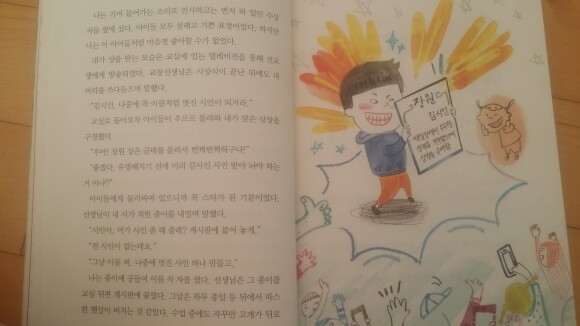 나는 기어 들어가는 소리로 인사하고는 먼저 와 있던 수상
자들 옆에 섰다. 아이들 모두 설레고 기쁜 표정이었다. 하지만
나는 이 아이들처럼 마음껏 좋아할 수가 없었다.
내가 상을 받는 모습은 교실에 있는 텔레비전을 통해 전교
생에게 방송되었다. 교장선생님은 시상식이 끝난 뒤에도 내
머리를 쓰다듬으며 말했다.
"김시인, 나중에 꼭 이름처럼 멋진 시인이 되거라."
교실로 돌아오자 아이들이 우르르 몰려와 내가 받은 상장을
구경했다.
"우아! 장원 상은 금테를 둘러서 번쩍번쩍하구나!"
"좋겠다. 유명해지기 전에 미리 김시인 사인 받아 놔야 하는
거 아냐?"
아이들에게 둘러싸여 있으니까 꼭 스타가 된 기분이었다.
선생님이 내 시가 적힌 종이를 내밀며 말했다.
"시인아, 여기 사인 좀 해 줄래? 게시판에 붙여 놓게."
"전 사인이 없는데요."
"그냥 이름 써. 나중에 멋진 사인 하나 만들고."
나는 종이에 공들여 이름 석 자를 썼다. 선생님은 그 종이를
교실 뒤편 게시판에 붙였다. 그날은 하루 종일 등 뒤에서 따스
한 햇살이 비치는 것 같았다. 수업 중에도 자꾸만 고개가 뒤로
장원
김시인